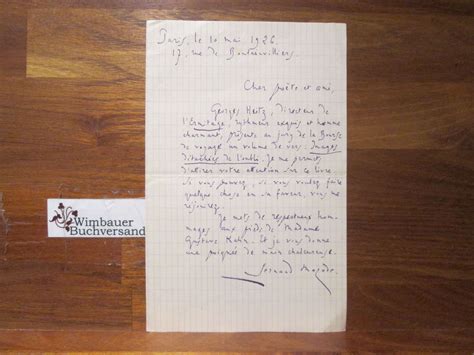 Paris, le 10 mai 1926.
17, rue de Boulainvilliers.
Cher poète et ami,
Georges Heitz, directeur de
l'Ermitage, rythmeur exquis et homme
charmant, présente au jury de la Bourse
de voyage un volume de vers: Images
détachées de l'oubli. Je me permets
d'attirer votre attention sur ce livre.
Si vous pouvez, si vous voulez faire
quelque chose en sa faveur, vous me
réjouirez.
Je mets de respectueux hom-
mages aux pieds de Madame
Gustave Kahn. Et je vous donne
une poignée de main chaleureuse.
Fernand
Wimbauer
Buchversand